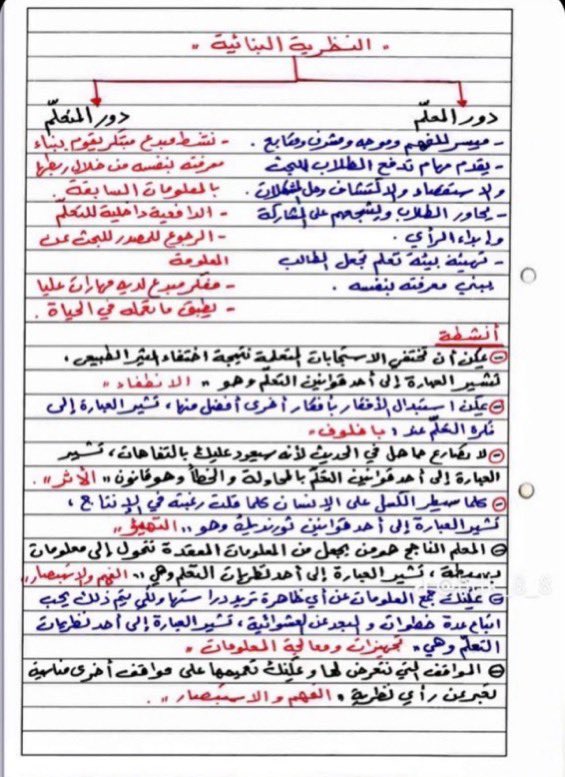 " النظرية البنائية "
دور المعلّم
- ميسر للفهم وموجه ومشرف ومتابع .
- يقدم مهام تدفع الطلاب للبحث
والاستقصاء والاكتشاف وحل المشكلات .
- يحاور الطلاب ويشجعهم على المشاركة
وإبداء الرأي .
- تهيئة بيئة تعلم تجعل الطالب
يبني معرفته بنفسه .
دور المتعلّم
- نشط مبدع مبتكر يقوم ببناء
معرفته بنفسه من خلال ربطها
بالمعلومات السابقة .
- الدافعية داخلية للتعلّم
- الرجوع للمصدر للبحث عن
المعلومة
- مفكر مبدع لديه مهارات عليا
- يطبق ما تعلمه في الحياة .
أنشطة
- يمكن أن تختفي الاستجابات المتعلمة نتيجة اختفاء المثير الطبيعي ،
تشير العبارة إلى أحد قوانين التعلّم وهو " الانطفاء "
- يمكن استبدال الأفكار بأفكار أخرى أفضل منها ، تشير العبارة إلى
نظرة التعلّم عند : " بافلوف "
- لا تصارع جاهل في الحديث لأنه سيعود عليك بالتفاهات ، تشير
العبارة إلى أحد قوانين التعلّم بالمحاولة والخطأ وهو قانون " الأثر " .
- كلما سيطر الكسل على الإنسان كلما قلت رغبته في الإنتاج ،
تشير العبارة إلى أحد قوانين ثورنديك وهو " التهيؤ "
- المعلم الناجح هو من يجعل من المعلومات المعقدة تتحول إلى معلومات
بسيطة ، تشير العبارة إلى أحد نظريات التعلم وهي " الفهم والاستبصار "
- يمكنك جمع المعلومات عن أي ظاهرة تريد دراستها ولكي يتم ذلك يجب
اتباع عدة خطوات والبعد عن العشوائية ، تشير العبارة إلى أحد نظريات
التعلّم وهي " تجهيزات ومعالجة المعلومات "
- المواقف التي نتعرض لها ويمكنك تعميمها على مواقف أخرى مناسبة
تعبر عن رأي نظرية " الفهم والاستبصار " .